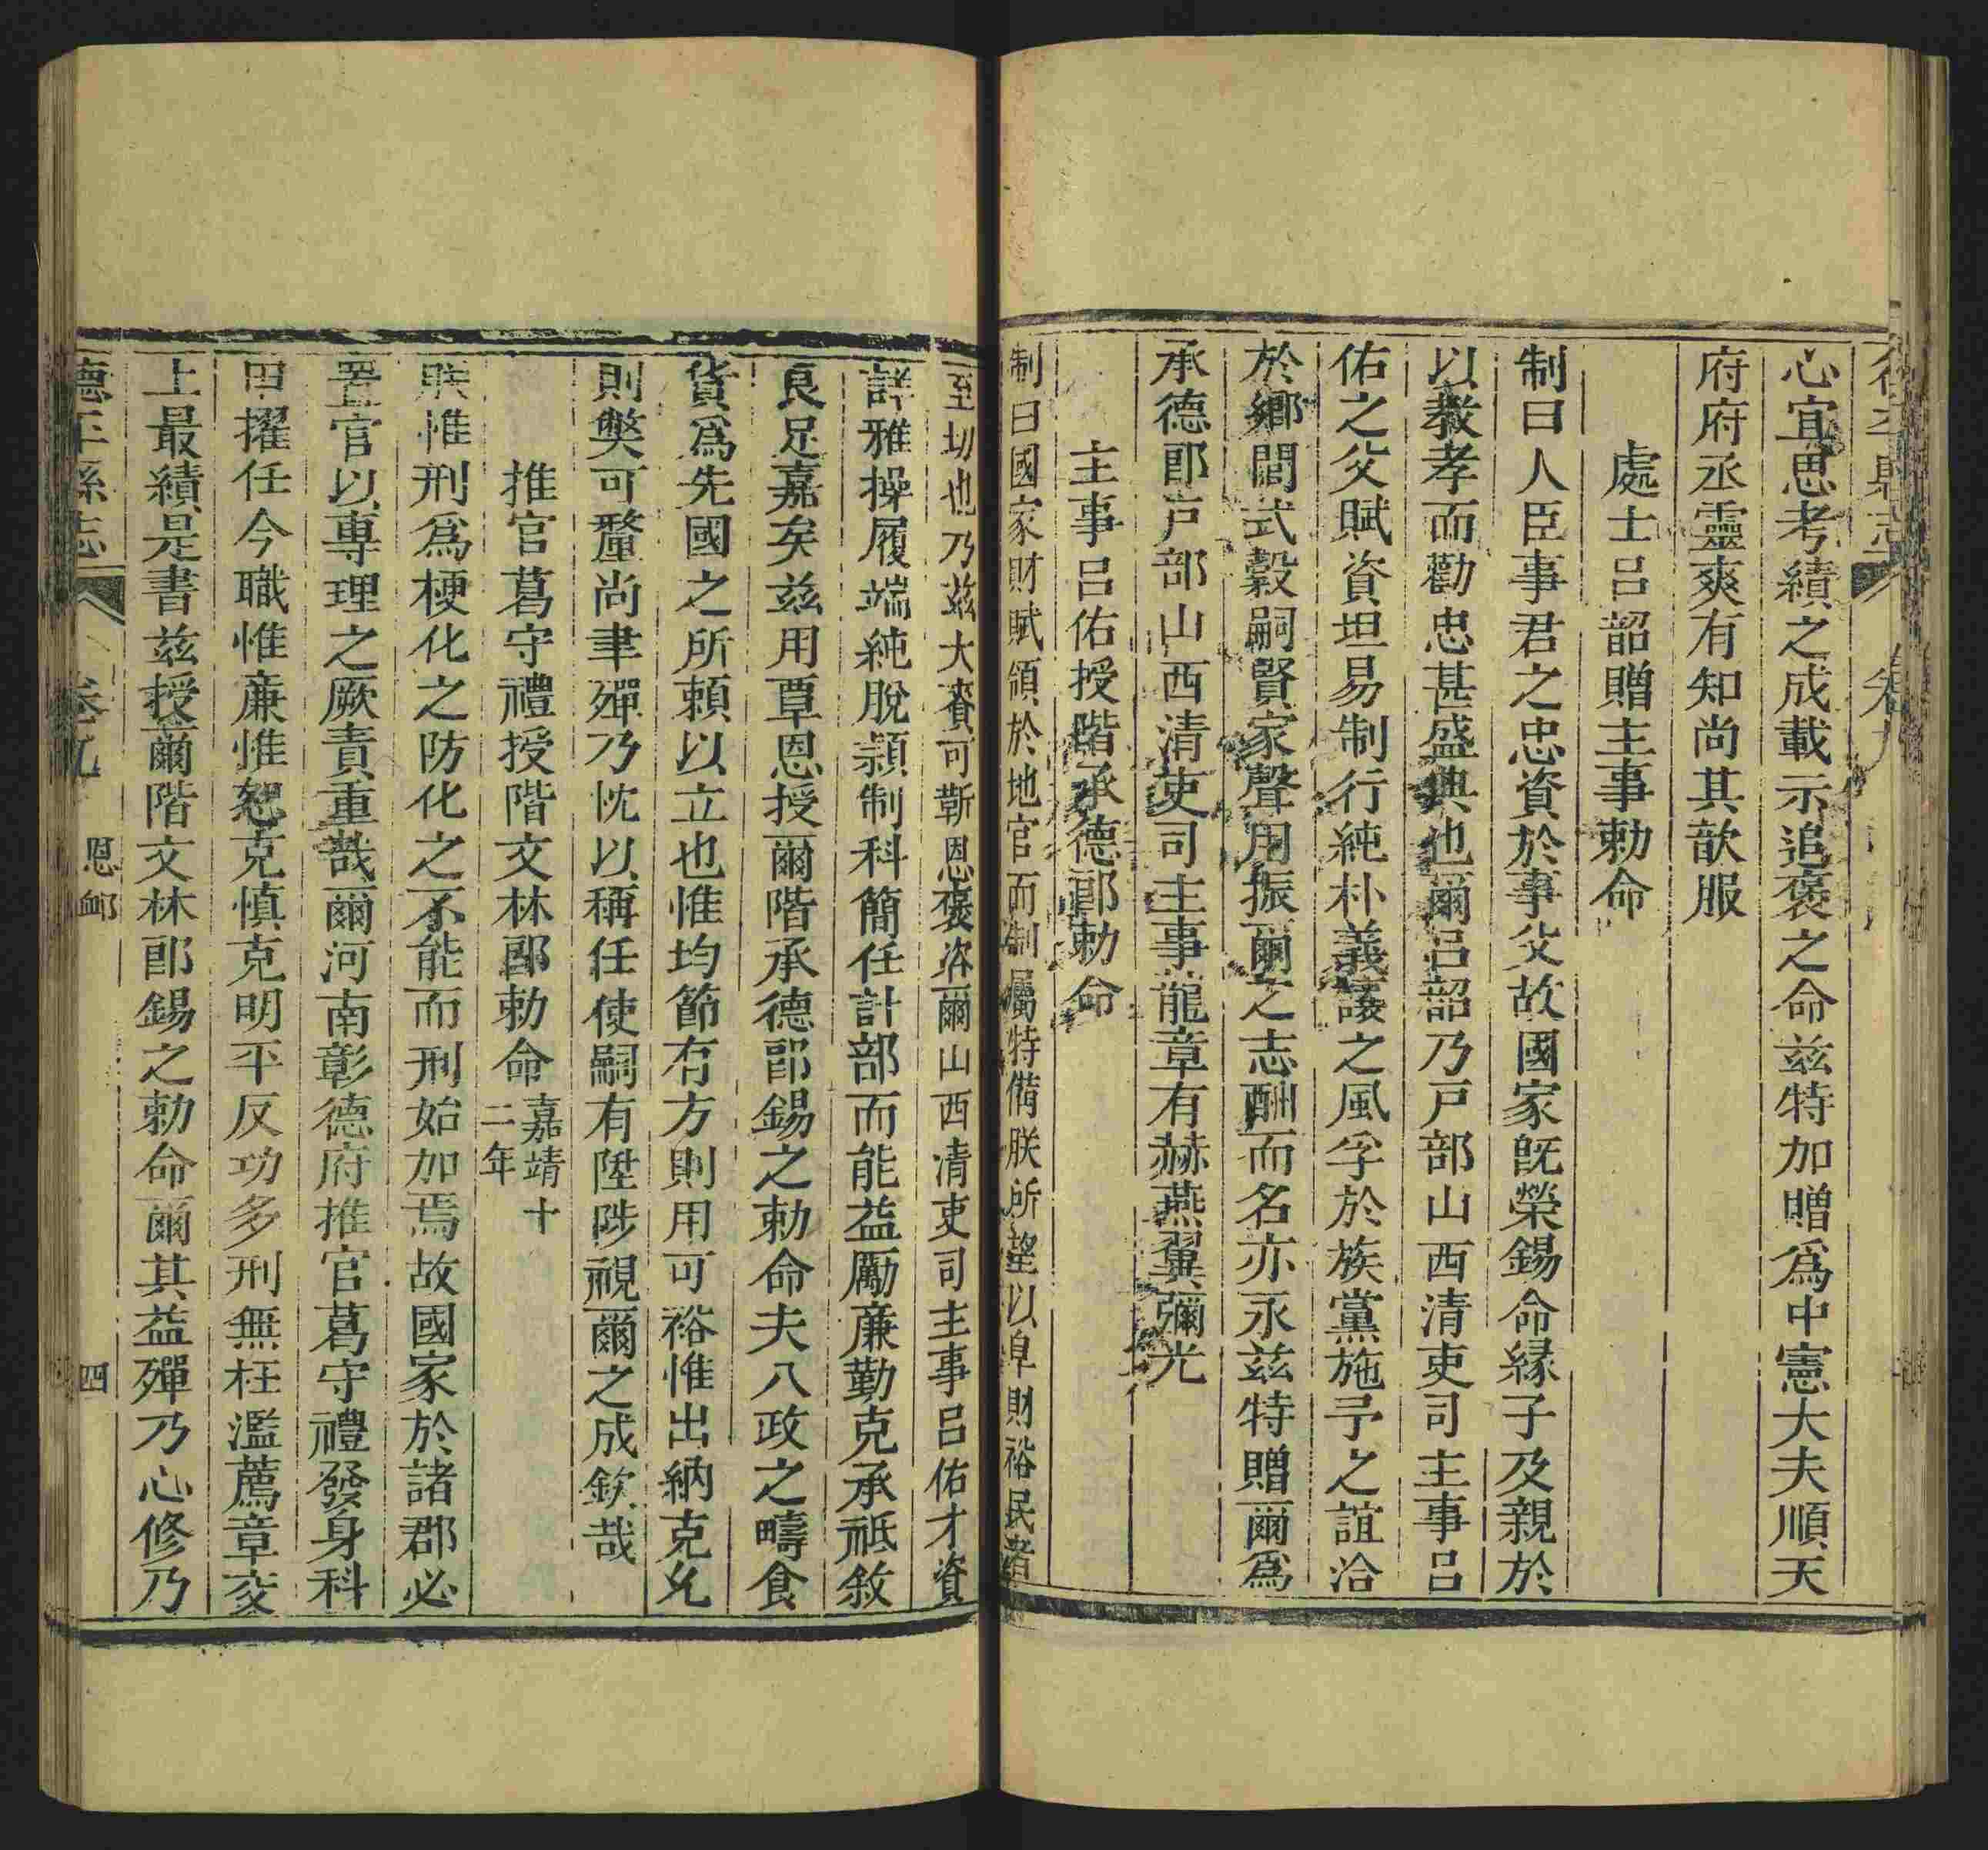 德平縣志 卷九
心宜思考績之成載示追褒之命茲特加贈爲中憲大夫順天
府府丞靈爽有知尚其歆服
處士呂韶贈主事勅命
制曰人臣事君之忠資於事父故國家旣榮錫命縁子及親於
以教孝而勸忠甚盛典也爾呂韶乃戸部山西清吏司主事呂
佑之父賦資坦易制行純朴義讓之風孚於族黨施予之誼洽
於鄉閭式穀嗣賢家聲用振爾之志酬而名亦永茲特贈爾爲
承德郎戸部山西清吏司主事龍章有赫燕翼彌光
主事呂佑授階承德郎勅命
制曰國家財賦領於地官而制屬特備朕所望以阜財裕民者
至切也乃茲大賚可靳恩褒咨爾山西清吏司主事呂佑才資
詳雅操履端純脫潁制科簡任計部而能益勵廉勤克承祗敘
良足嘉矣茲用覃恩授爾階承德郎錫之勅命夫八政之疇食
貨爲先國之所賴以立也惟均節有方則用可裕惟出納克允
則獘可釐尚聿殫乃忱以稱任使嗣有陞陟視爾之成欽哉
推官葛守禮授階文林郎勅命 嘉靖十
二年
朕惟刑爲梗化之防化之不能而刑始加焉故國家於諸郡必
置官以專理之厥責重哉爾河南彰德府推官葛守禮發身科
甲擢任今職惟廉惟恕克慎克明平反功多刑無枉濫薦章交
上最績是書茲授爾階文林郎錫之勅命爾其益殫乃心修乃
德平縣志 卷九 恩䘏 四